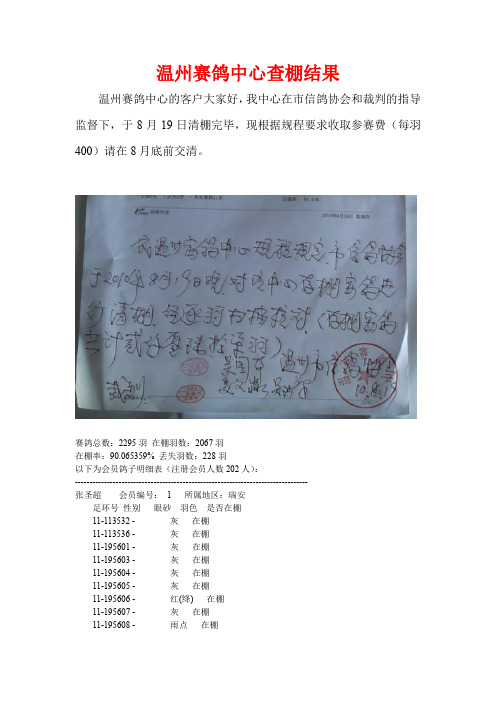 温州赛鸽中心查棚结果
温州赛鸽中心的客户大家好，我中心在市信鸽协会和裁判的指导
监督下，于 8 月 19 日清棚完毕，现根据规程要求收取参赛费（每羽
400）请在 8 月底前交清。
2010年8月19日 星期四
依温州赛鸽中心规程规定，市信鸽协会
于2010年8月19日晚对该中心存棚赛鸽进
行清棚，经逐羽扫描核对（存棚赛鸽
共计贰仟零陆拾柒羽）
温州市信鸽协会
裁判：
赛鸽总数：2295 羽 在棚羽数：2067 羽
在棚率：90.065359% 丢失羽数：228 羽
以下为会员鸽子明细表（注册会员人数 202 人）：
--------------------------------------------------------------------------------
张圣超 会员编号： 1 所属地区：瑞安
足环号 性别 眼砂 羽色 是否在棚
11-113532 - 灰 在棚
11-113536 - 灰 在棚
11-195601 - 灰 在棚
11-195603 - 灰 在棚
11-195604 - 灰 在棚
11-195605 - 灰 在棚
11-195606 - 红(绛) 在棚
11-195607 - 灰 在棚
11-195608 - 雨点 在棚